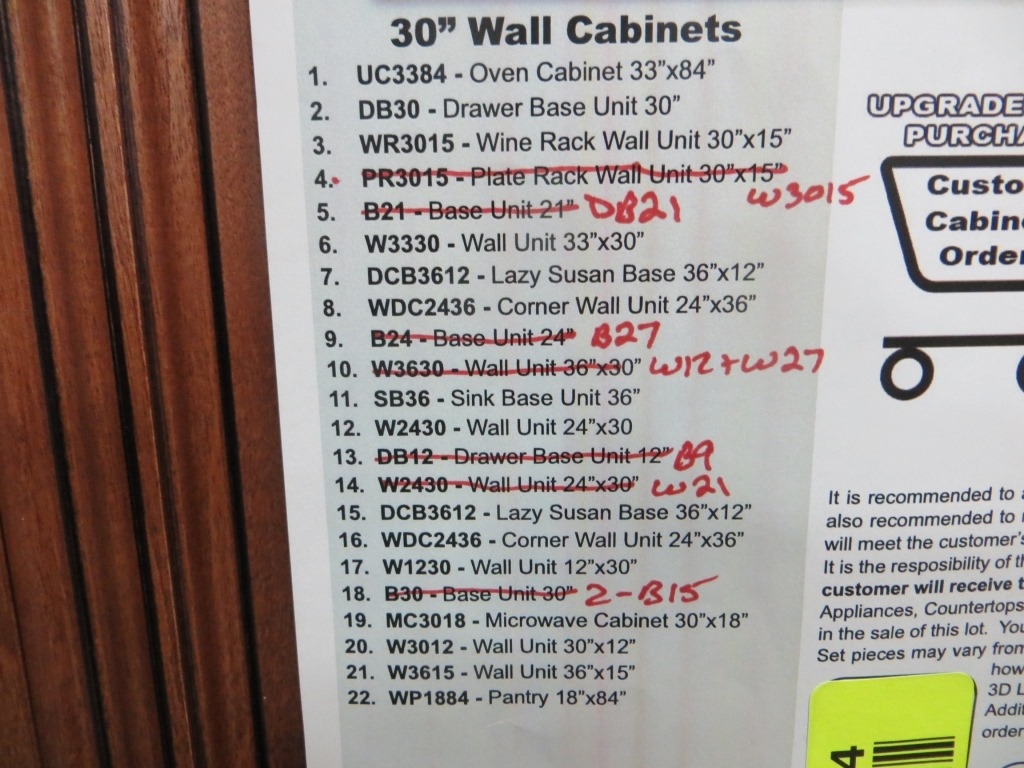 30” Wall Cabinets
1. UC3384 - Oven Cabinet 33”x84”
2. DB30 - Drawer Base Unit 30”
3. WR3015 - Wine Rack Wall Unit 30”x15”
4. PR3015 - Plate Rack Wall Unit 30”x15” W3015
5. B21 - Base Unit 21” DB21
6. W3330 - Wall Unit 33”x30”
7. DCB3612 - Lazy Susan Base 36”x12”
8. WDC2436 - Corner Wall Unit 24”x36”
9. B24 - Base Unit 24” B27
10. W3630 - Wall Unit 36”x30” W12 + W27
11. SB36 - Sink Base Unit 36”
12. W2430 - Wall Unit 24”x30
13. DB12 - Drawer Base Unit 12” B9
14. W2430 - Wall Unit 24”x30” W21
15. DCB3612 - Lazy Susan Base 36”x12”
16. WDC2436 - Corner Wall Unit 24”x36”
17. W1230 - Wall Unit 12”x30”
18. B30 - Base Unit 30” 2-B15
19. MC3018 - Microwave Cabinet 30”x18”
20. W3012 - Wall Unit 30”x12”
21. W3615 - Wall Unit 36”x15”
22. WP1884 - Pantry 18”x84”
UPGRADE
PURCHA
Custo
Cabin
Order
It is recommended to
also recommended to
will meet the customer's
It is the resposibility of th
customer will receive t
Appliances, Countertops
in the sale of this lot. You
Set pieces may vary from
how
3D L
Addi
order
4